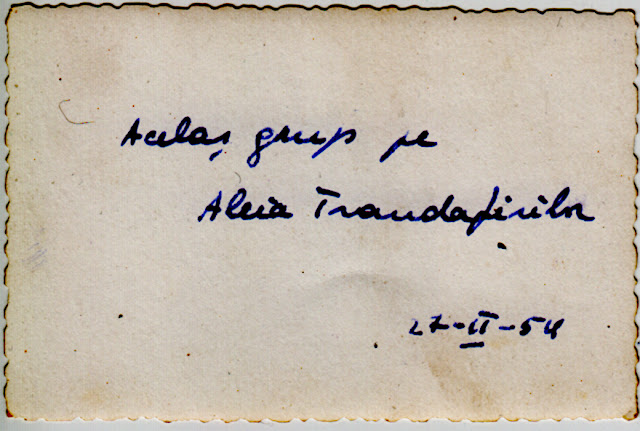 Acelaș grup pe
Aleia Trandafirilor
27-II-54